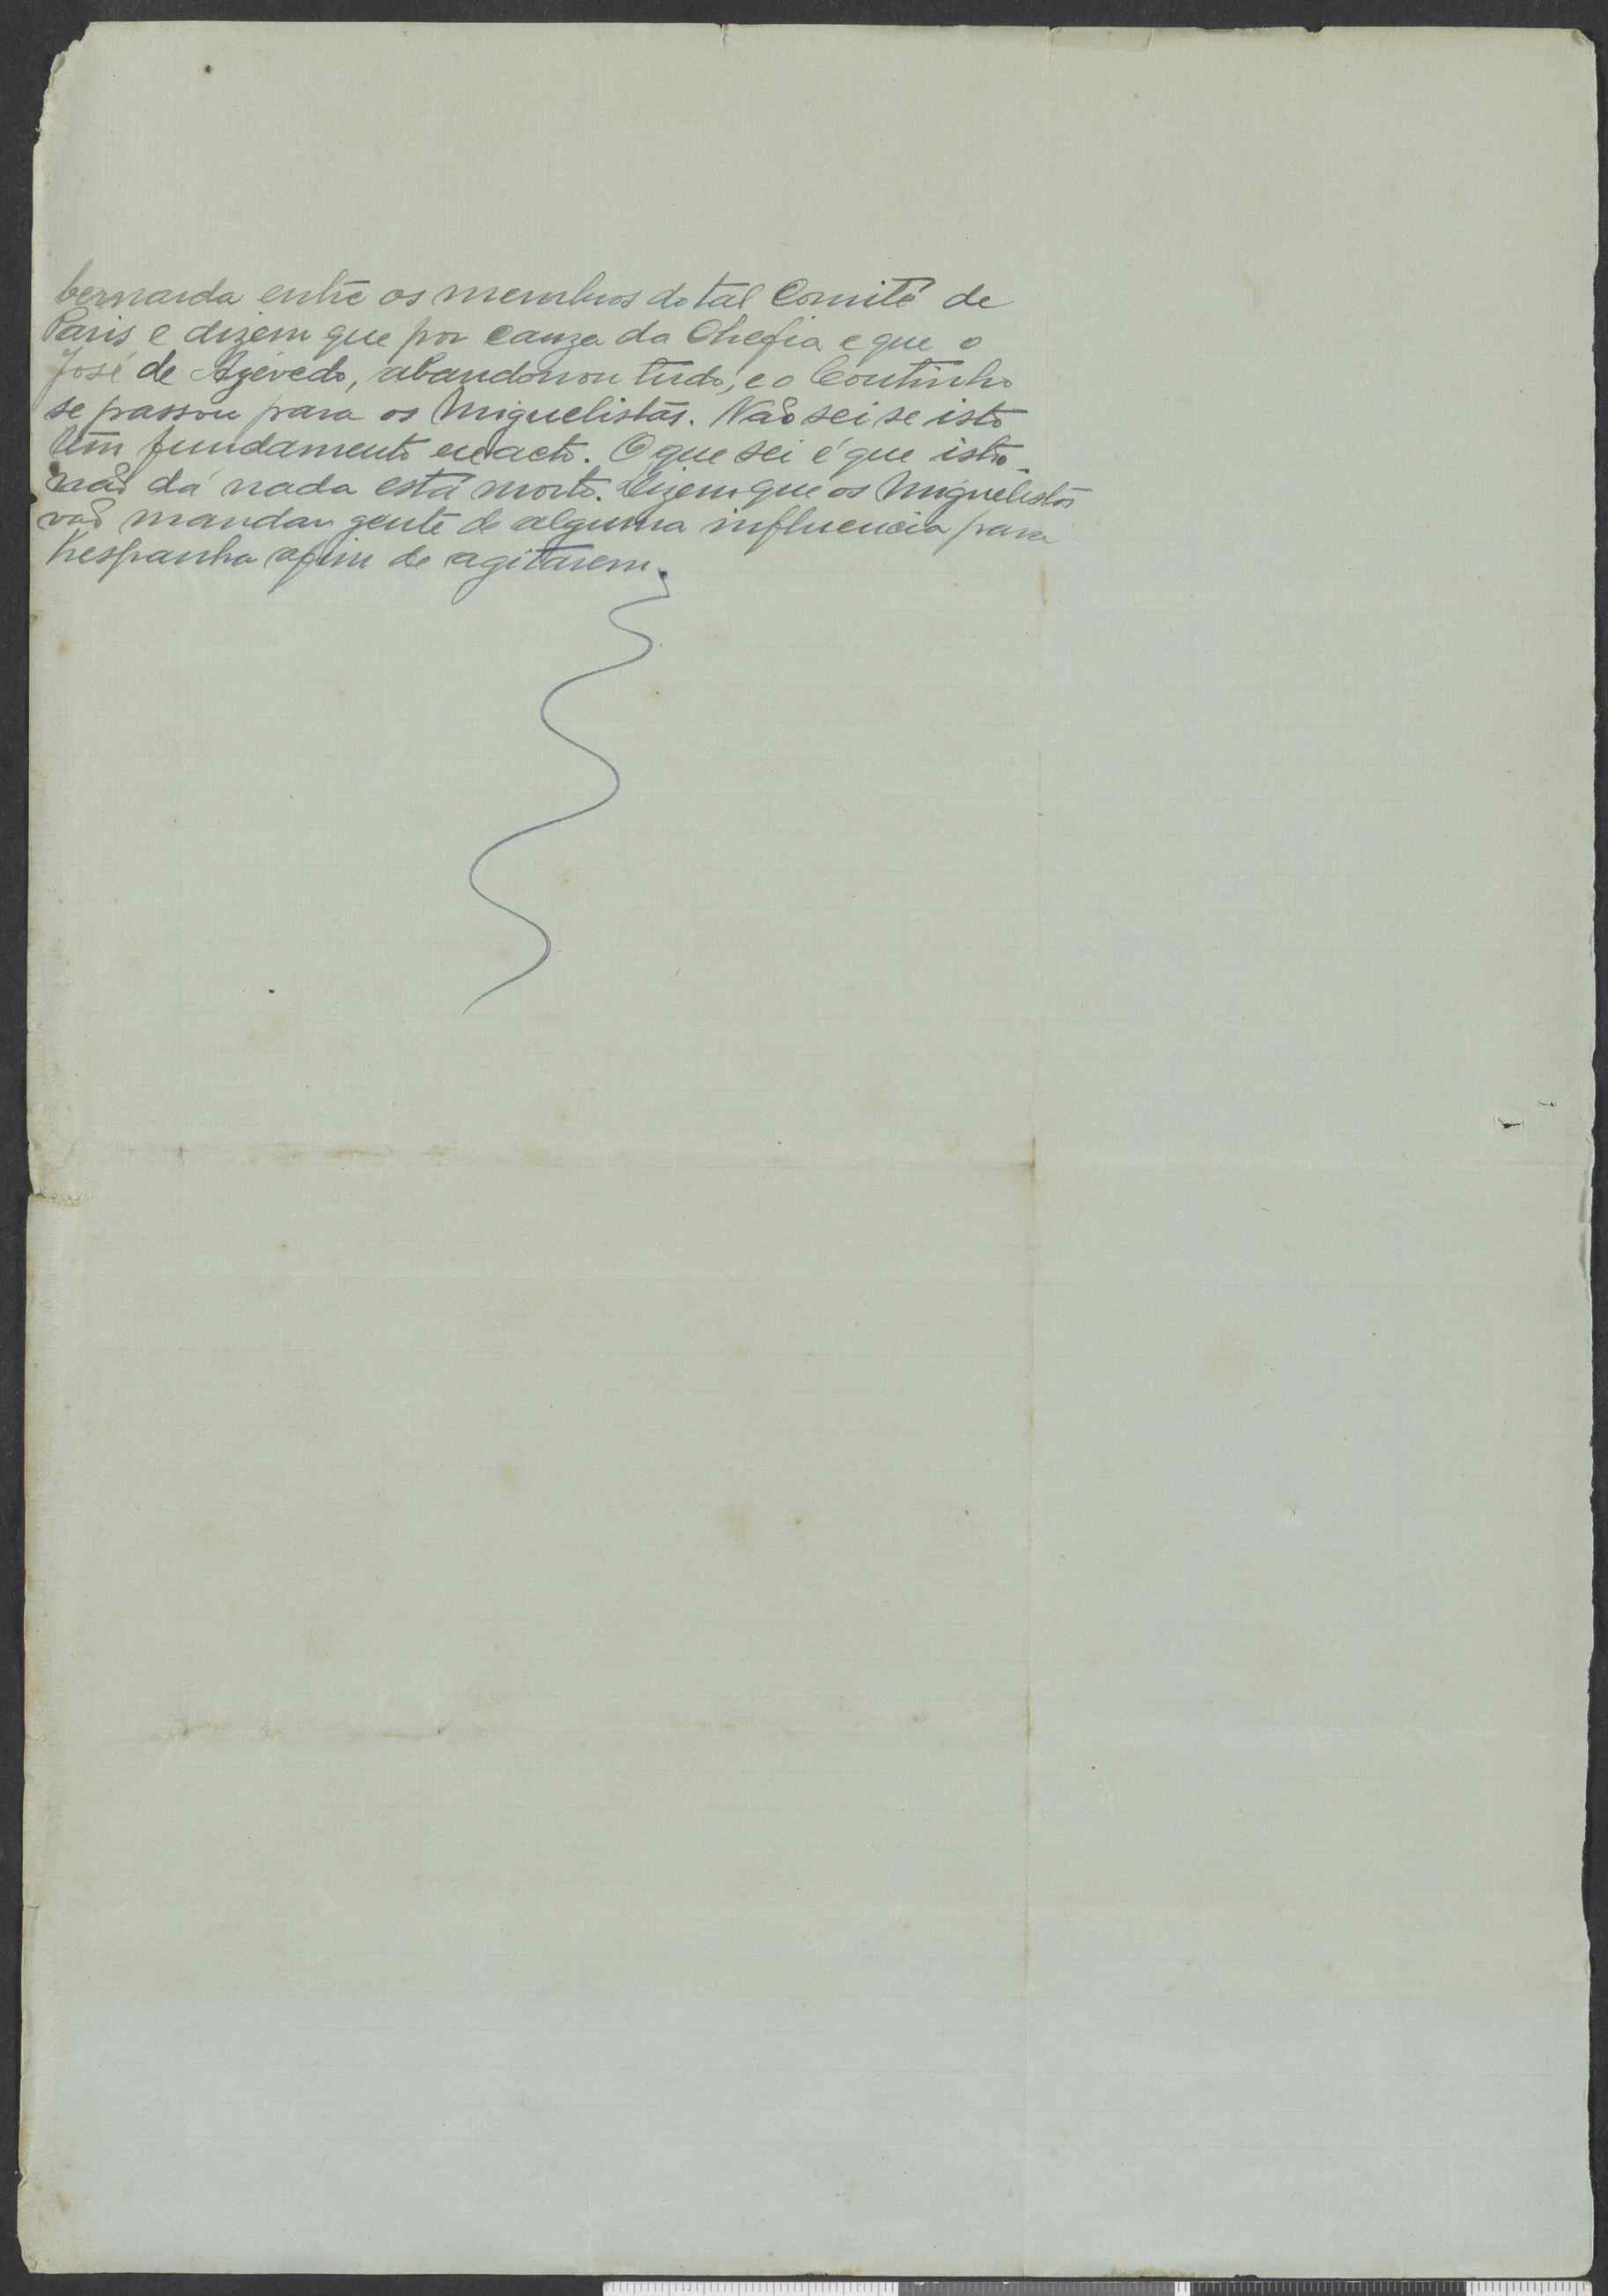 bernarda entre os membros do tal Comité de
Paris e dizem que por cauza da Chefia e que o
José de Azevedo, abandonou tudo, e o Coutinho
se passou para os Miguelistas. Não sei se isto
têm fundamento exacto. O que sei é que isto
não dá nada está morto. Dizem que os Miguelistas
vão mandar gente de alguma influencia para
Hespanha afim de agitarem.